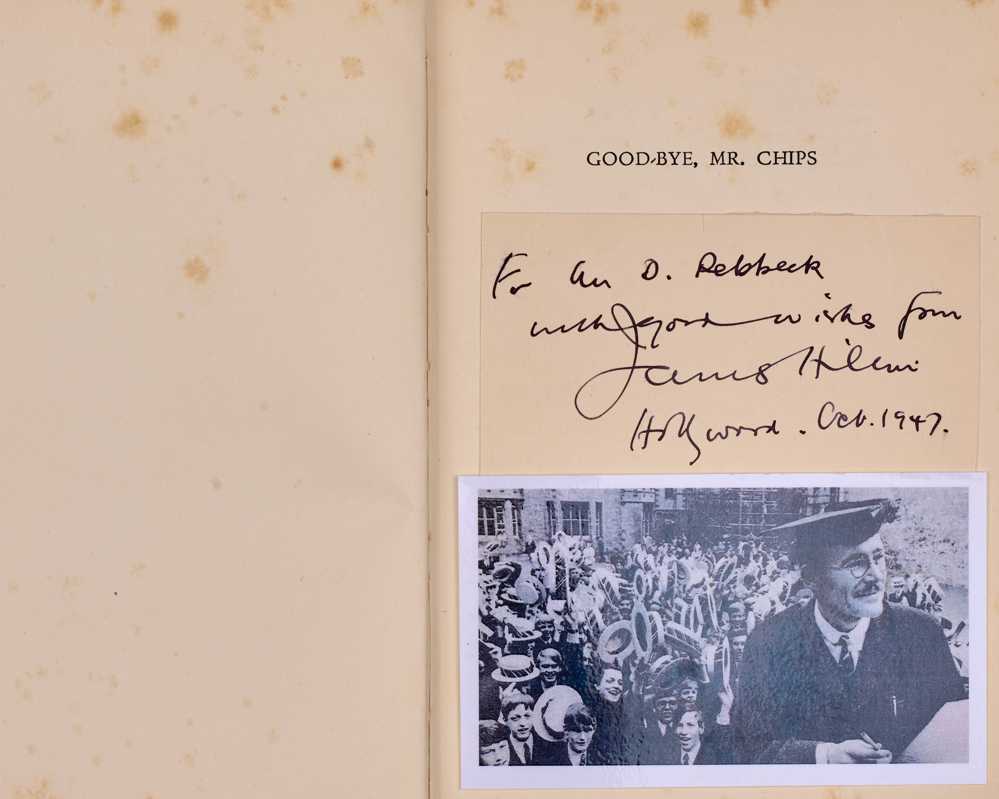 GOOD-BYE, MR. CHIPS
For D. Rebbeck
with good wishes from
James Hilton
Hollywood. Oct. 1947.